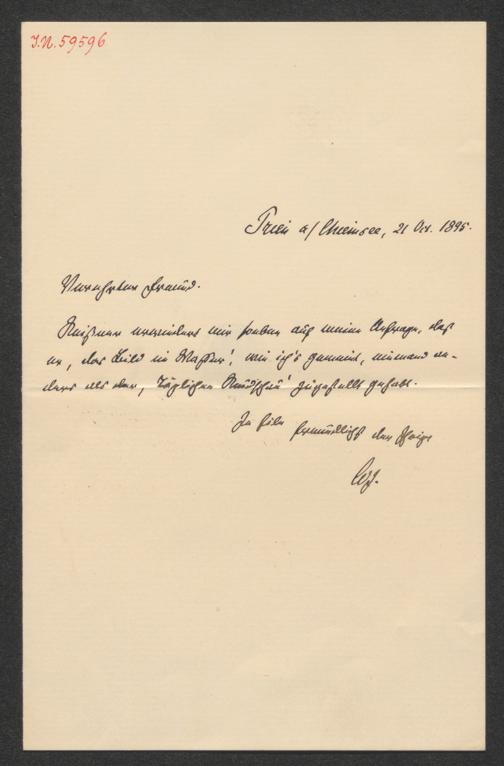 I.N. 59596
Prien a/Chiemsee, 21 Oct. 1895.
Verehrter Freund.
erwidert mir soeben auf meine Anfrage, daß
er, das Bild im Wasser', wie ich's gemeint, niemand an-
ders als der, Täglichen Rundschau' zugestellt gehabt.
In Eile
freundlichst der Ihrige